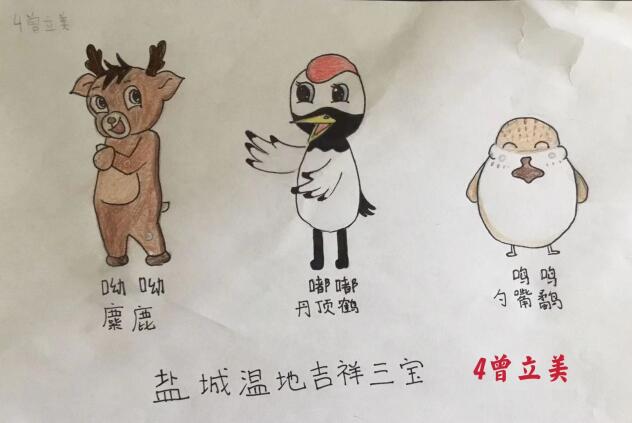 4曾立美
呦呦
麋鹿
嘟嘟
丹顶鹤
鸣鸣
勺嘴鹬
盐城温地吉祥三宝
4曾立美